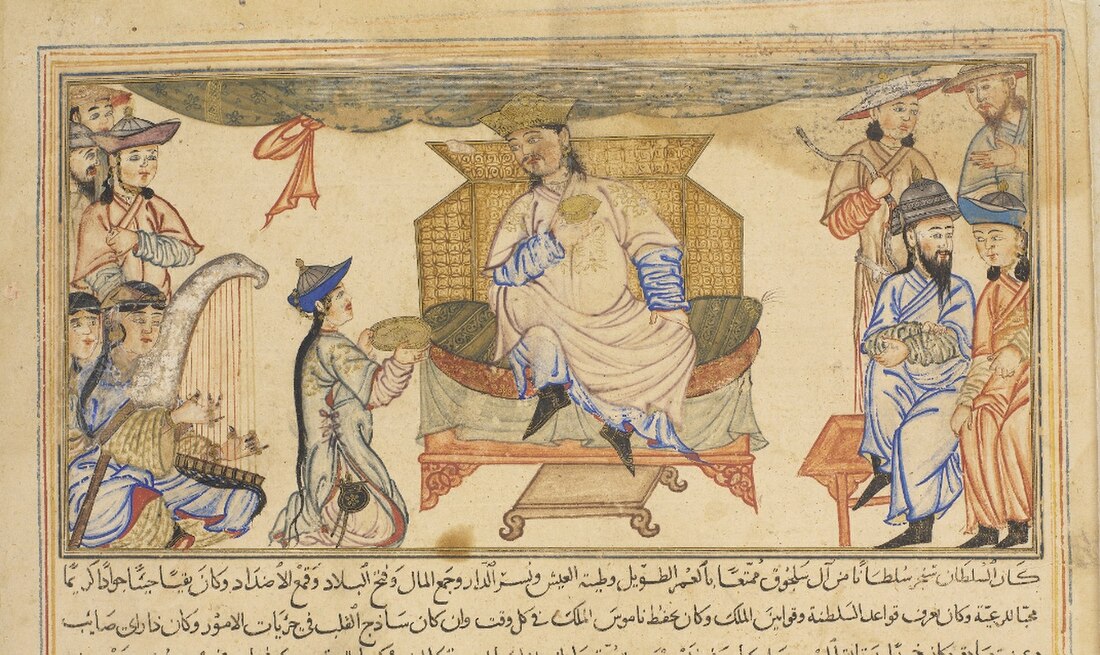 كان السلطان سنجر سلطانا من آل سلجوق ممتعا بالعمر الطويل وطيب العيش ويسر الدار وجمع المال وفتح البلاد وقمع الاضداد وكان يفاجينا جوادا كريما
محبا للرعية وكان يعرف قواعد السلطنة وقوانين الملك وكان يحفظ ناموس الملك فى كل وقت وان كان ساذج القلب فى جزيات الامور وكان ذا راى صايب